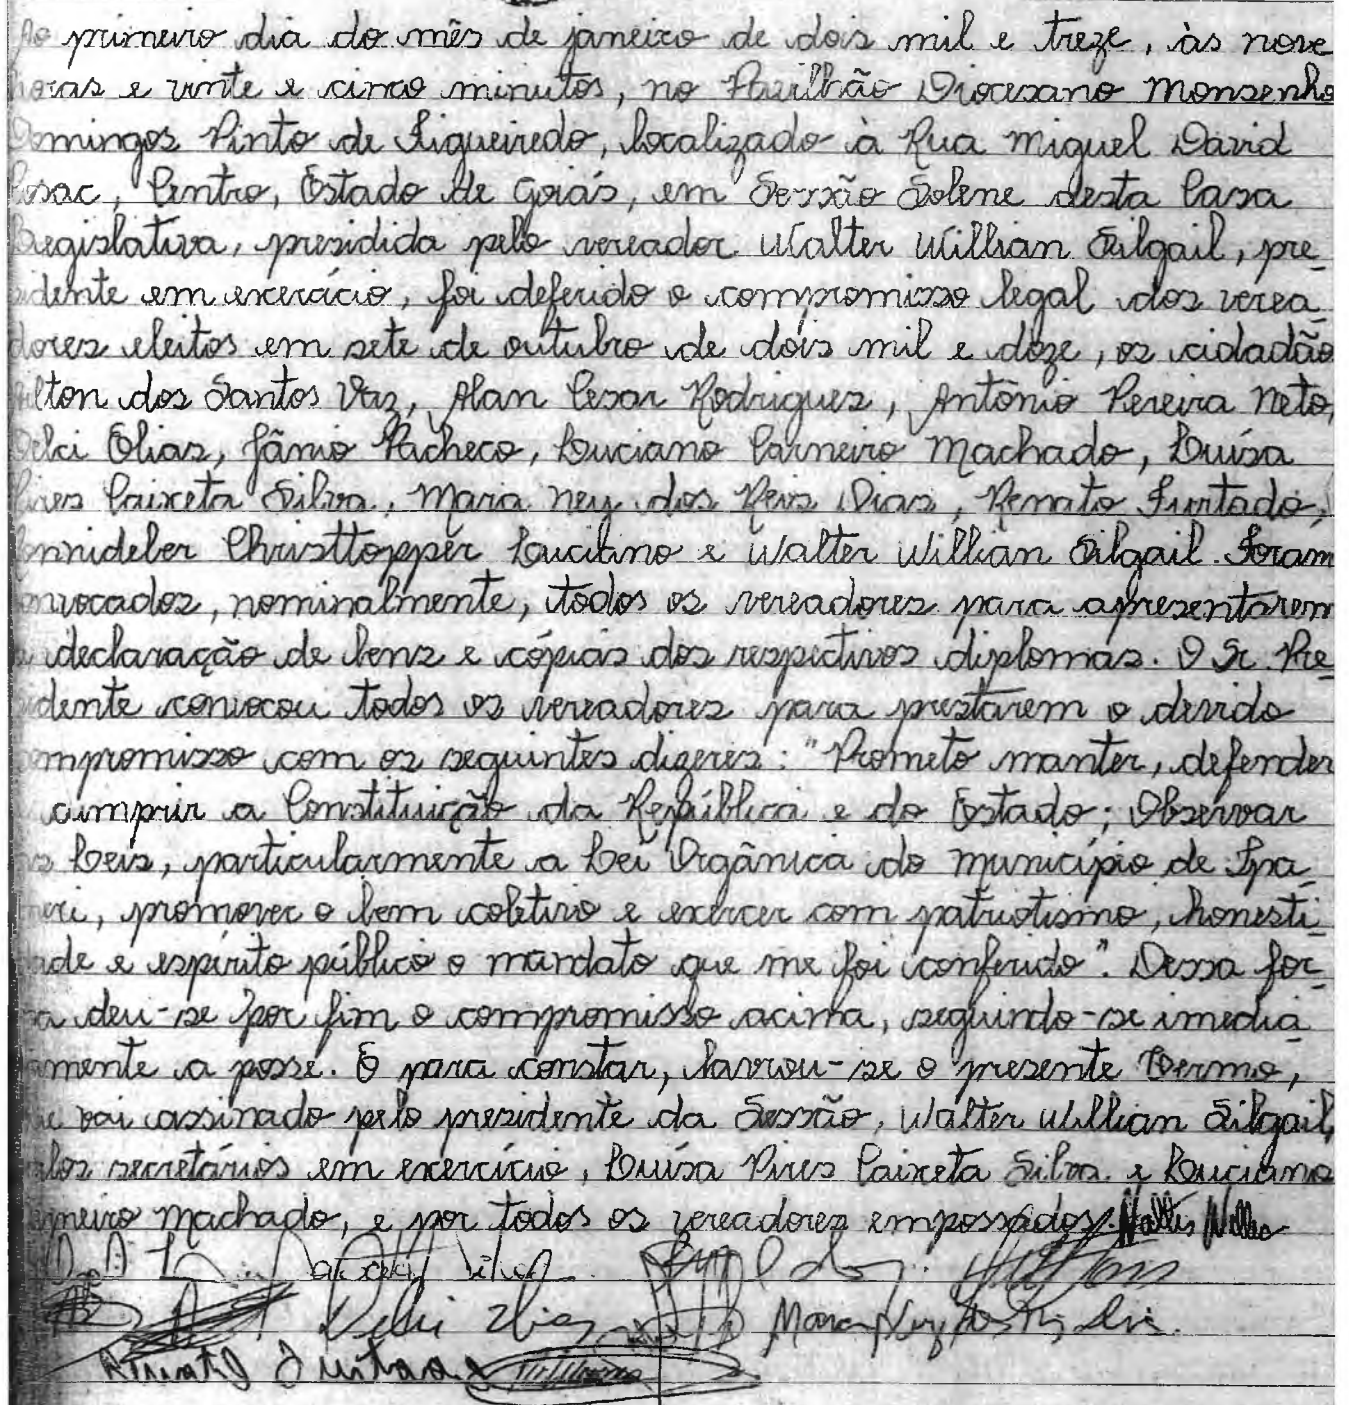 Ao primeiro dia do mês de janeiro de dois mil e treze, às nove
horas e vinte e cinco minutos, no Pavilhão Diocesano Monsenho
Domingos Pinto de Figueiredo, localizado à Rua Miguel David
Cosac, Centro, Estado de Goiás, em Sessão Solene desta Casa
Legislativa, presidida pelo vereador Walter Willian Silgail, pre-
sidente em exercício, foi deferido o compromisso legal dos verea-
dores eleitos em sete de outubro de dois mil e doze, os cidadão
ilton dos Santos Vaz, Alan Cesar Rodrigues, Antônio Pereira Neto,
Delci Elias, Jânio Pacheco, Luciano Carneiro Machado, Luísa
Pires Caixeta Silva, Maria Ney dos Reis Dias, Renato Furtado,
onnideber Christtopper Luciano e Walter Willian Silgail. Foram
convocados, nominalmente, todos os vereadores para apresentarem
a declaração de bens e cópias dos respectivos diplomas. O Sr. Pre-
sidente convocou todos os vereadores para prestarem o devido
compromisso com os seguintes dizeres: "Prometo manter, defender
cumprir a Constituição da República e do Estado; Observar
as Leis, particularmente a Lei Orgânica do Município de Ipa-
meri, promover o bem coletivo e exercer com patriotismo, honesti-
dade e espírito público o mandato que me foi conferido". Dessa for-
ma deu-se por fim o compromisso acima, seguindo-se imedia-
tamente a posse. E para constar, lavrou-se o presente Termo,
que vai assinado pelo presidente da Sessão, Walter Willian Silgail,
pelos secretários em exercício, Luísa Pires Caixeta Silva e Luciano
Carneiro Machado, e por todos os vereadores empossados. Walter Willia
Delci Elias Maria Ney dos Reis Dias
Renato Furtado